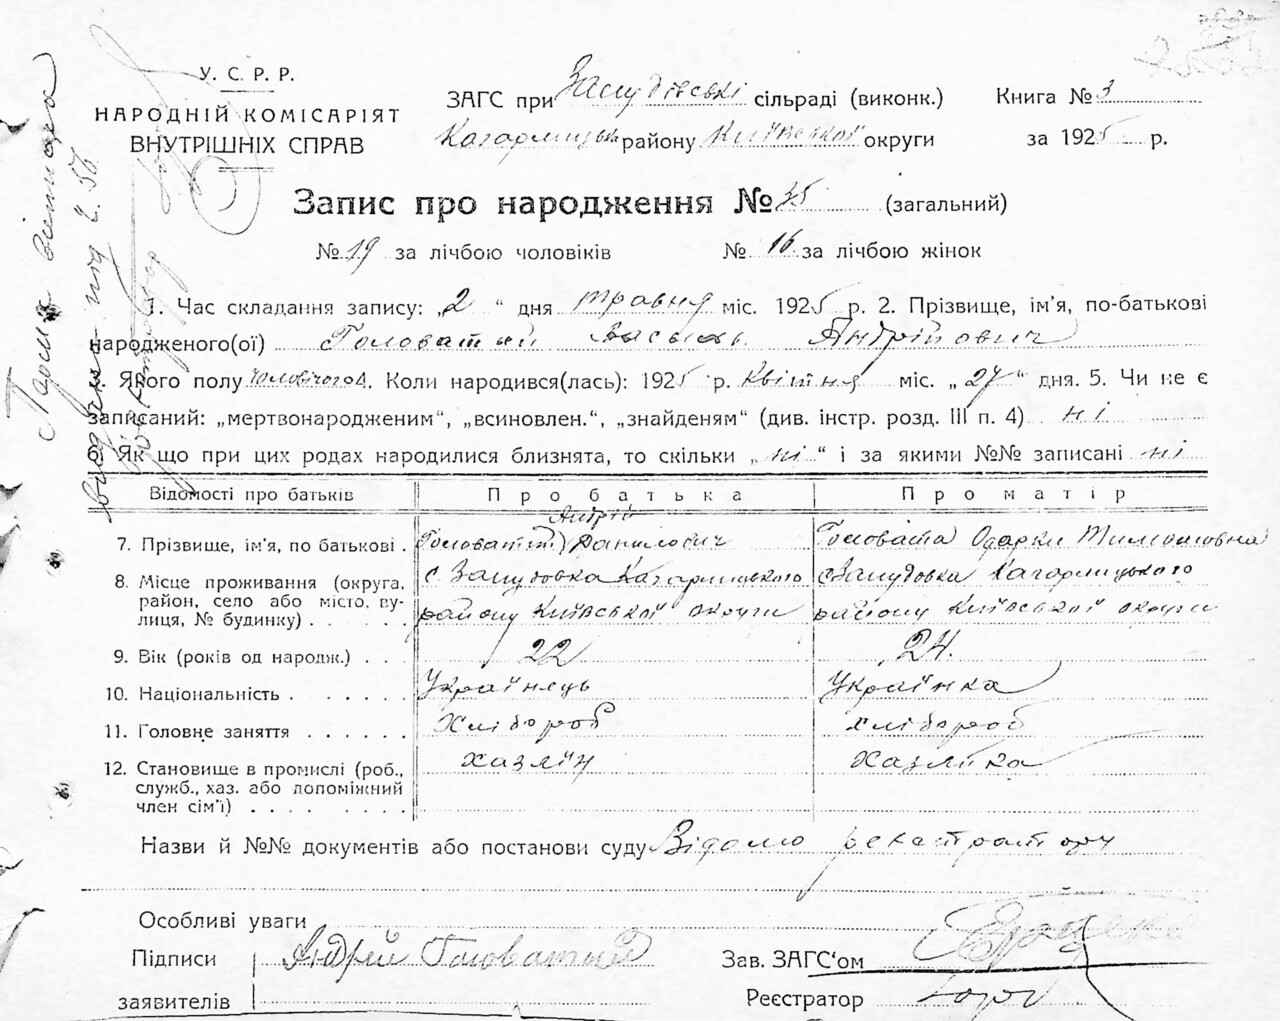 У. С. Р. Р.
НАРОДНІЙ КОМІСАРІЯТ
ВНУТРІШНІХ СПРАВ
ЗАГС при Зашудівські сільраді (виконк.) Книга № 3
Кагарлицьк району Київської округи за 1925 р.
Запис про народження № 35 (загальний)
№ 19 за лічбою чоловіків № 16 за лічбою жінок
1. Час складання запису: „2“ дня травня міс. 1925 р. 2. Прізвище, ім'я, по-батькові
народженого(ої) Головатий Василь Андрійович
Якого полу чоловічого 4. Коли народився(лась): 1925 р. Квітня міс. „27“ дня. 5. Чи не є
записаний: „мертвонародженим“, „всиновлен.“, „знайденям“ (див. інстр. розд. III п. 4) ні
6. Як що при цих родах народилися близнята, то скільки „ні“ і за якими №№ записані ні
Відомості про батьків Про батька Про матір
Андрій
7. Прізвище, ім'я, по батькові . Головатий Данилович Головата Одарка Тимошовна
8. Місце проживання (округа, район, село або місто, вулиця, № будинку) . . . . . с. Зашудовка Кагарлицького району Київської округи с Зашудовка Кагарлицького району Київської округи
9. Вік (років од народж.) . . . 22 24.
10. Національність . . . . . . Українець Українка
11. Головне заняття . . . . . . Хлібороб хлібороб
12. Становище в промислі (роб., служб., хаз. або допоміжний член сім'ї) . . . . . . . хазяїн хазяїка
Назви й №№ документів або постанови суду Відомо реєстратору
Особливі уваги
Підписи Андрей Головатый Зав. ЗАГС'ом
заявителів Реєстратор